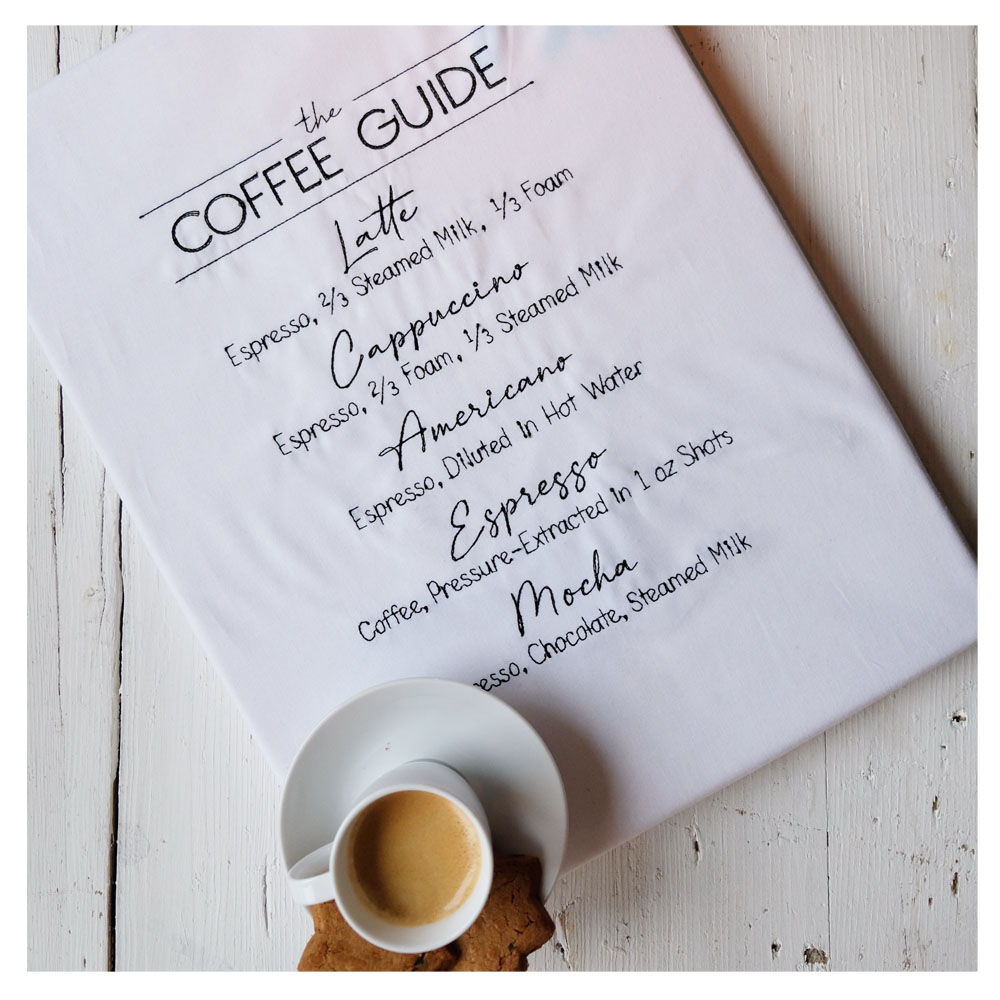 the
COFFEE GUIDE
Latte
Espresso, 2/3 Steamed Milk, 1/3 Foam
Cappuccino
Espresso, 2/3 Foam, 1/3 Steamed Milk
Americano
Espresso, Diluted in Hot Water
Espresso
Coffee, Pressure-Extracted in 1 oz Shots
Mocha
esso, Chocolate, Steamed Milk